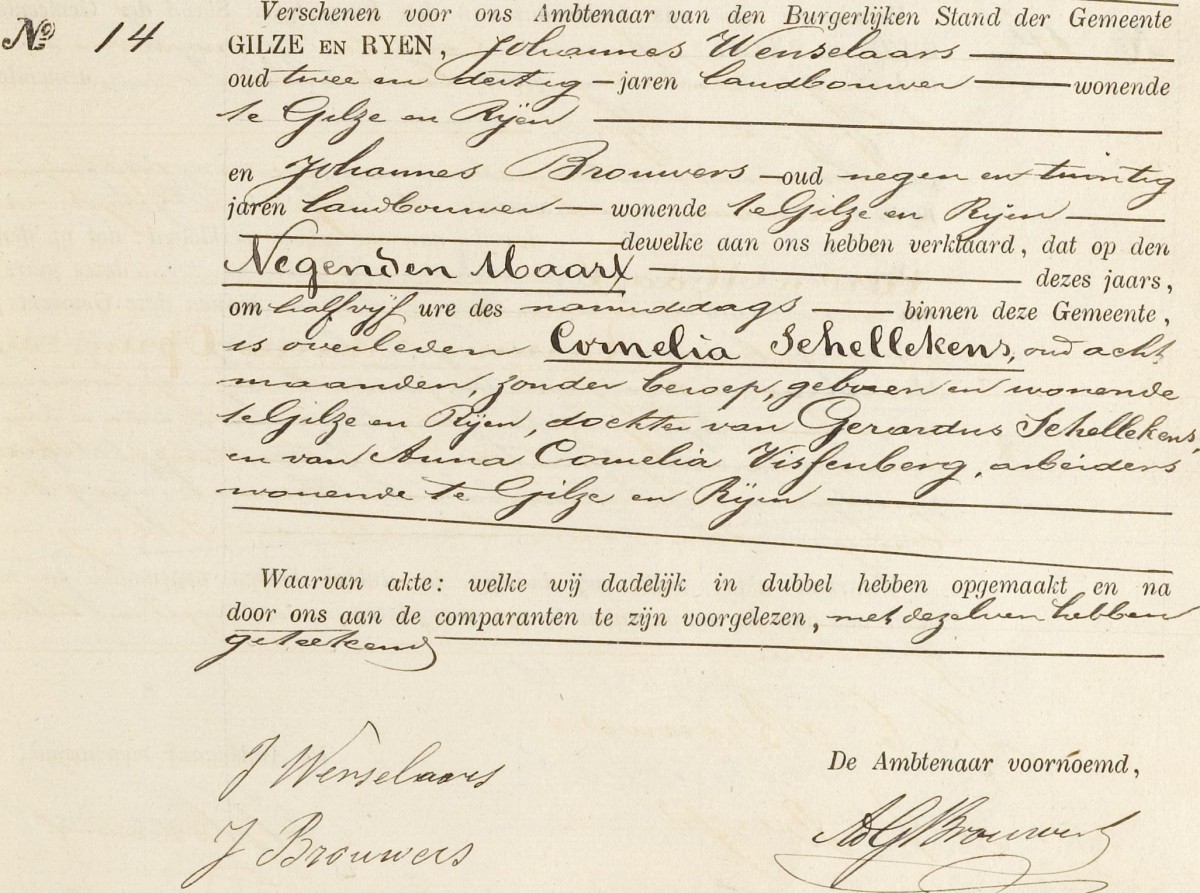 Nº 14
Verschenen voor ons Ambtenaar van den Burgerlijken Stand der Gemeente
GILZE EN RYEN, Johannes Wenselaars
oud twee en dertig jaren landbouwer wonende
te Gilze en Rijen
en Johannes Brouwers oud negen en twintig
jaren landbouwer wonende te Gilze en Rijen
dewelke aan ons hebben verklaard, dat op den
Negenden Maart dezes jaars,
om half vijf ure des namiddags binnen deze Gemeente,
is overleden Cornelia Schellekens, oud acht
maanden, zonder beroep, geboren en wonende
te Gilze en Rijen, dochter van Gerardus Schellekens,
en van Anna Cornelia Vissenberg, arbeiders
wonende te Gilze en Rijen
Waarvan akte: welke wij dadelijk in dubbel hebben opgemaakt en na
door ons aan de comparanten te zijn voorgelezen, met dezelven hebben
geteekend
J Wenselaars
De Ambtenaar voornoemd,
J Brouwers
Brouwers